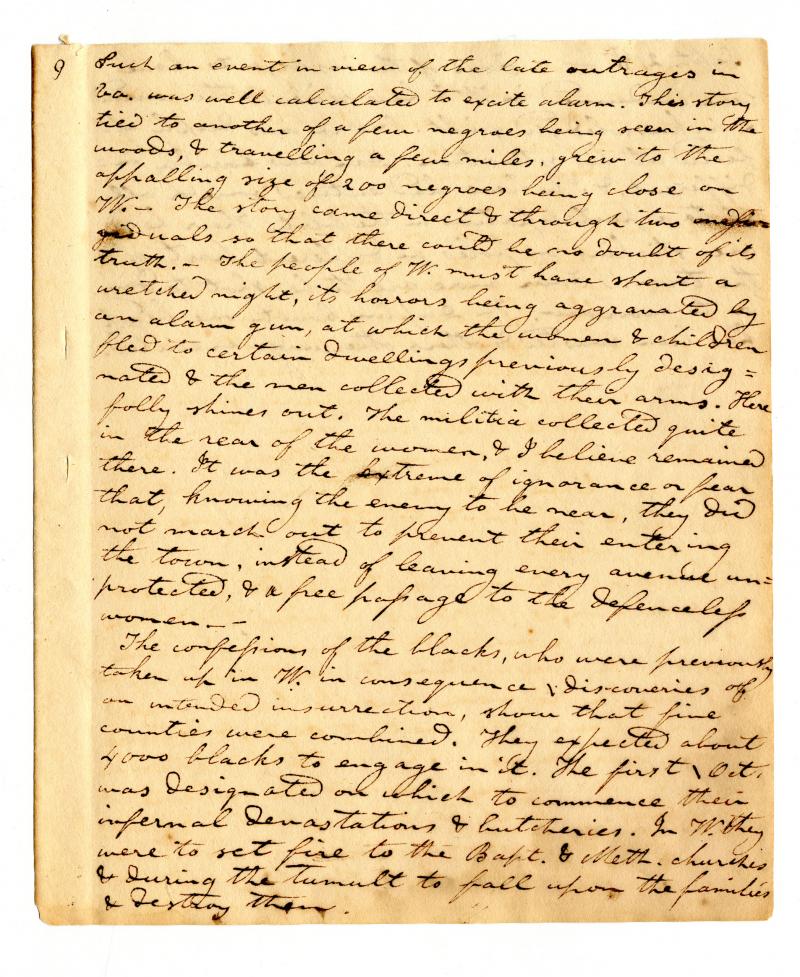 9
Such an event in view of the late outrages in
Va. was well calculated to excite alarm. This story
tied to another of a few negroes being seen in the
woods, & travelling a few miles, grew to the
appalling size of 200 negroes being close on
W.— The story came direct & through two indi-
viduals so that there could be no doubt of its
truth.— The people of W must have spent a
wretched night, its horrors being aggravated by
an alarm gun, at which the women & children
fled to certain dwellings previously desig=
nated & the men collected with their arms. Here
folly shines out. The militia collected quite
in the rear of the women, & I believe remained
there. It was the extreme of ignorance or fear
that, knowing the enemy to be near, they did
not march out to prevent their entering
the town, instead of leaving every avenue un=
protected, & a free passage to the defenceless
women.——
The confessions of the blacks, who were previously
taken up in W. in consequence \ discoveries of
an intended insurrection, show that five
counties were combined. They expected about
4000 blacks to engage in it. The first \ Oct.
was designated on which to commence their
infernal devastations & butcheries. In W. they
were to set fire to the Bapt. & Meth. churches
& during the tumult to fall upon the families
& destroy them.